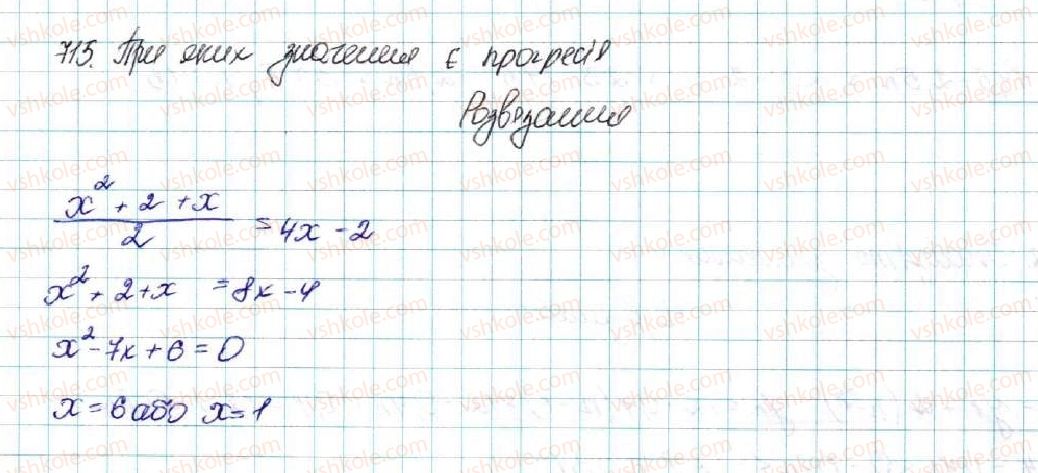 715. При яких значення є прогресія
Розвязання
(x² + 2 + x)/2 = 4x - 2
x² + 2 + x = 8x - 4
x² - 7x + 6 = 0
x = 6 або x = 1